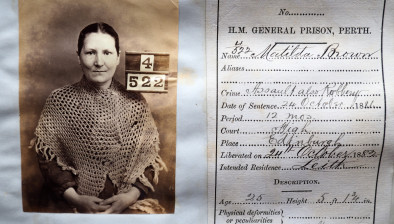 4
522
No.
H.M. GENERAL PRISON, PERTH.
522
Name Matilda Brown
Aliases
Crime Assault &amp; Robbery
Date of Sentence 24 October 1881
Period 12 mos
Court High
Place Edinburgh
Liberated on 24th October 1882
Intended Residence Leith
DESCRIPTION.
Age 25 Height 5 .. 1½ in
Physical deformities
or peculiarities